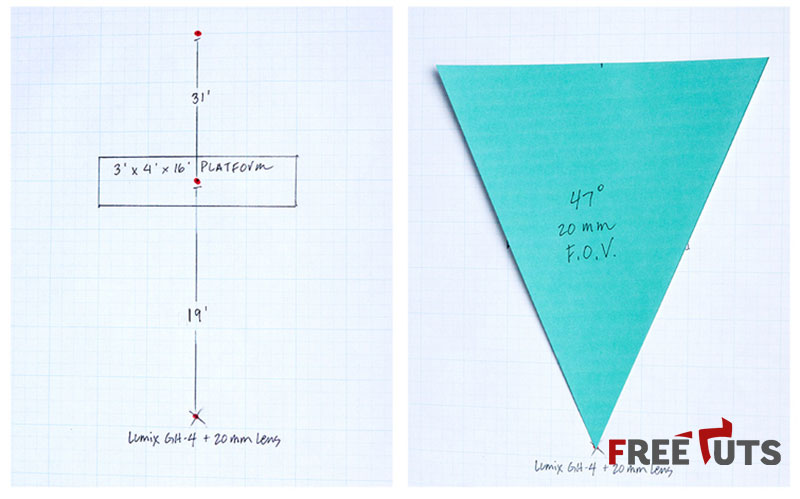 31'
3' x 4' x 16' PLATFORM
19'
Lumix GH-4 + 20 mm Lens
47°
20 mm
F.O.V.
Lumix GH-4 + 20 mm Lens
FREETUTS